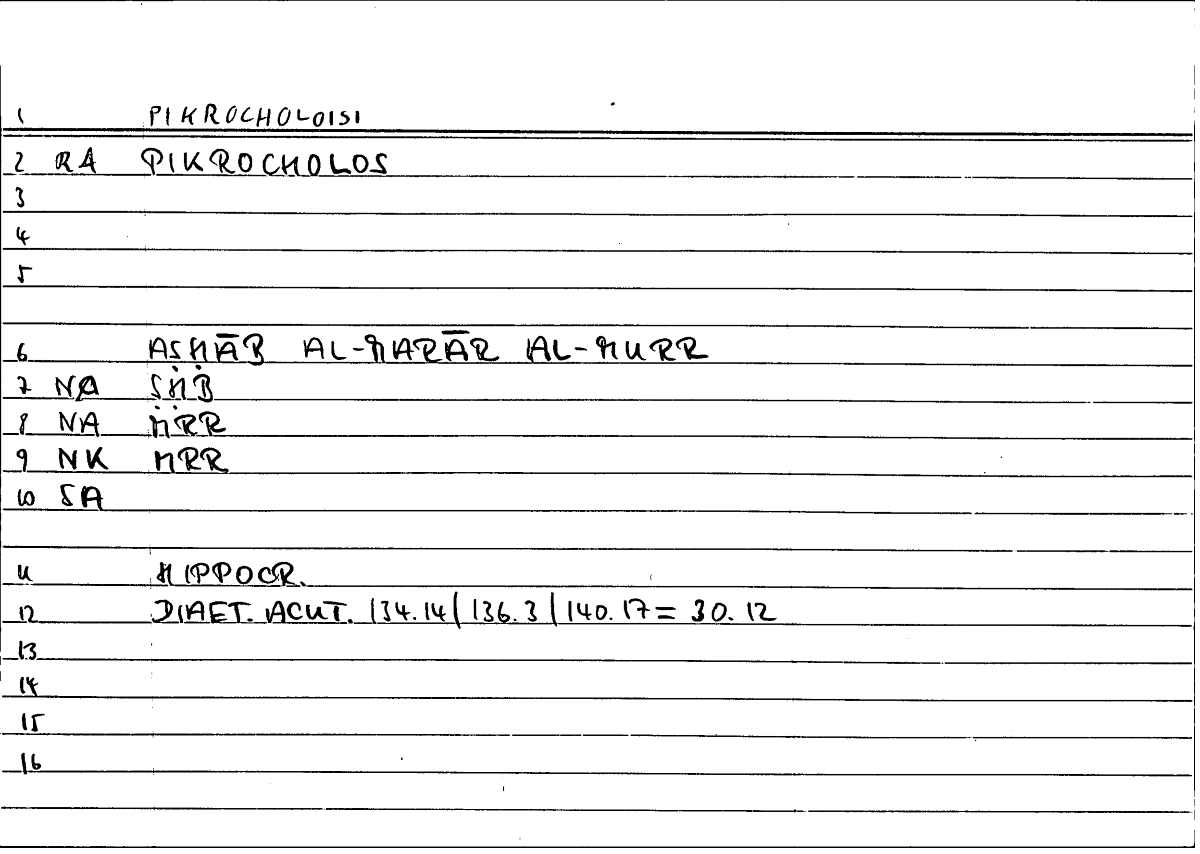 1 PIKROCHOLOISI
2 RA PIKROCHOLOS
3
4
5
6 AṢḤĀB AL-MARĀR AL-MURR
7 NA ṢḤB
8 NA MRR
9 NK MRR
10 SA
11 HIPPOCR.
12 DIAET. ACUT. 134.14 | 136.3 | 140.17 = 30.12
13
14
15
16